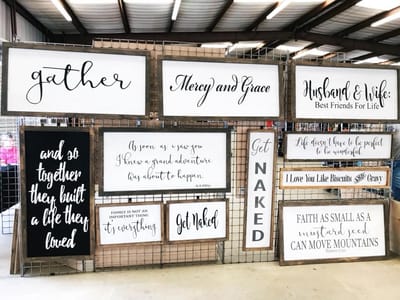 gather
Mercy and Grace
Husband & Wife:
Best Friends For Life
and so
together
they built
a life they
loved
As soon as I saw you
I knew a grand adventure
was about to happen.
Get
NAKED
Life doesn't have to be perfect
to be wonderful
I Love You Like Biscuits and Gravy
FAMILY IS NOT AN
IMPORTANT THING.
it's everything
Get Naked
FAITH AS SMALL AS A
mustard seed
CAN MOVE MOUNTAINS